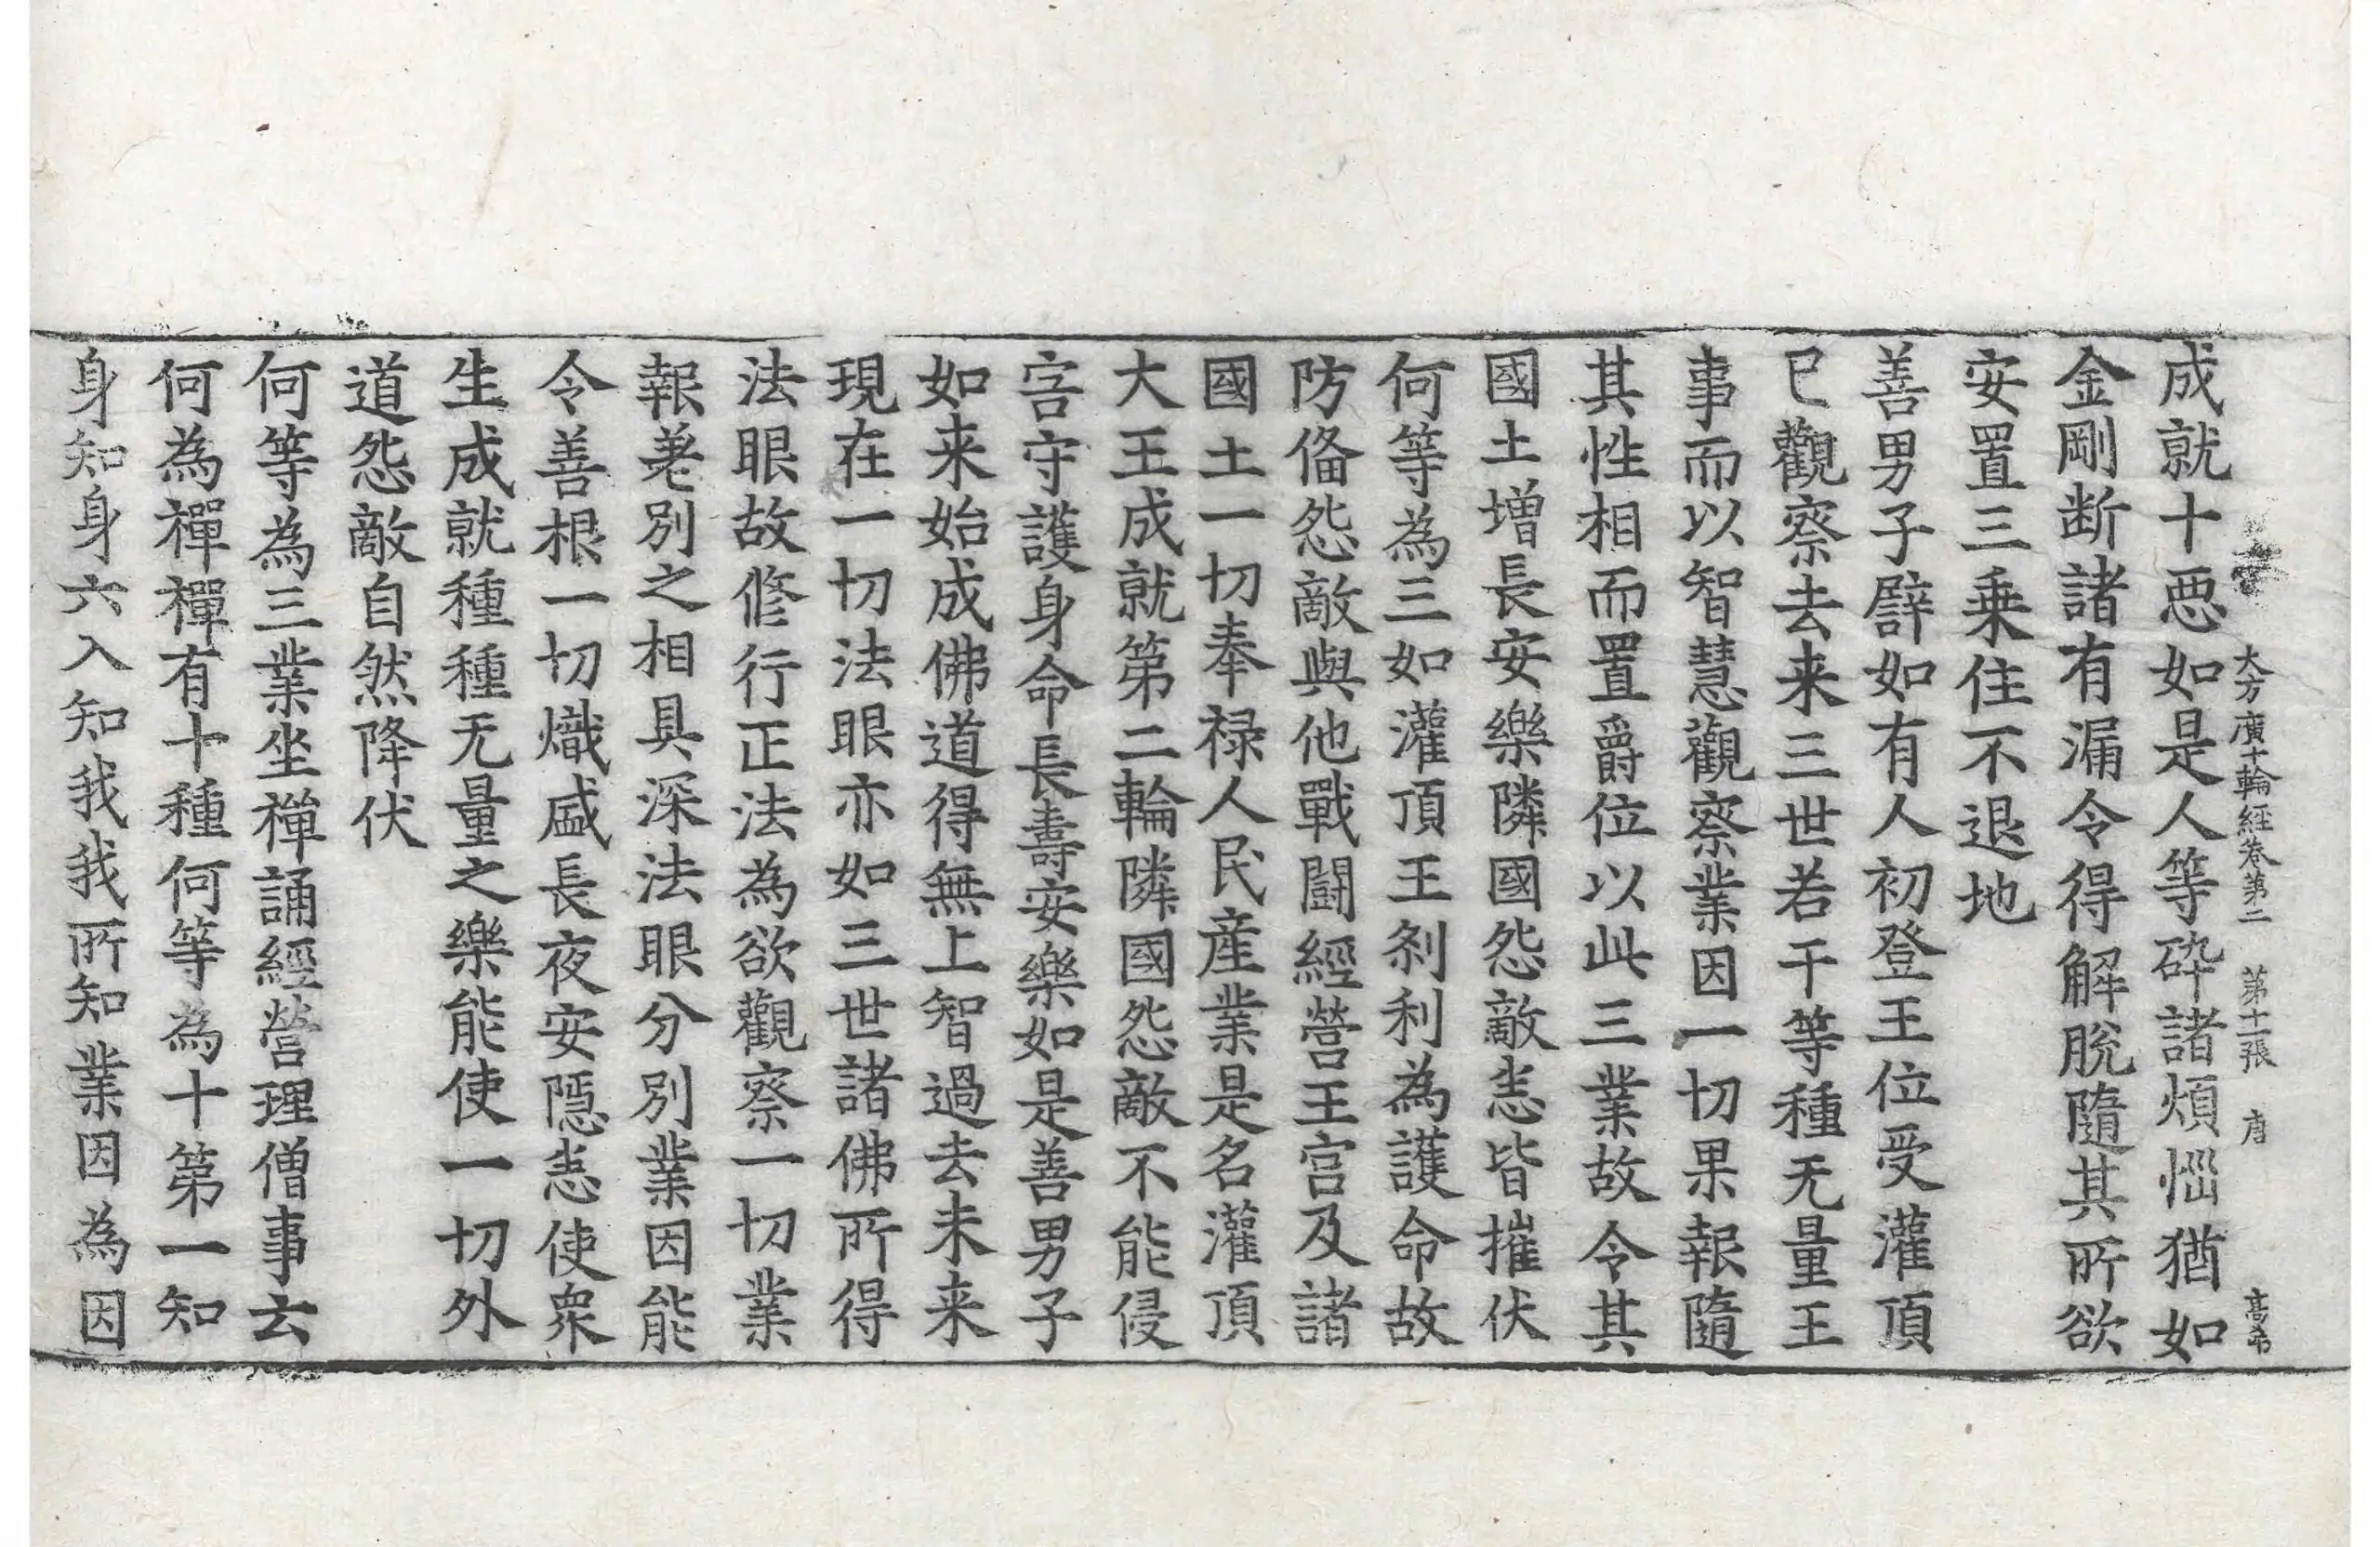 大方廣十輪經卷第二 第十二張 唐 髙希
成就十惡如是人等碎諸煩惱猶如
金剛断諸有漏令得解脫隨其所欲
安置三乗住不退地
善男子譬如有人初登王位受灌頂
已觀察去来三世若干等種无量王
事而以智慧觀察業因一切果報隨
其性相而置爵位以此三業故令其
國土增長安樂隣國怨敵悉皆摧伏
何等為三如灌頂王剎利為護命故
防俻怨敵與他戰闘經營王宫及諸
國土一切奉禄人民産業是名灌頂
大王成就第二輪隣國怨敵不能侵
害守護身命長壽安樂如是善男子
如来始成佛道得無上智過去未来
現在一切法眼亦如三世諸佛所得
法眼故修行正法為欲觀察一切業
報差別之相具深法眼分別業因能
令善根一切熾盛長夜安隱悉使衆
生成就種種无量之樂能使一切外
道怨敵自然降伏
何等為三業坐禪誦經營理僧事云
何為禪禪有十種何等為十第一知
身知身六入知我我所知業因為因